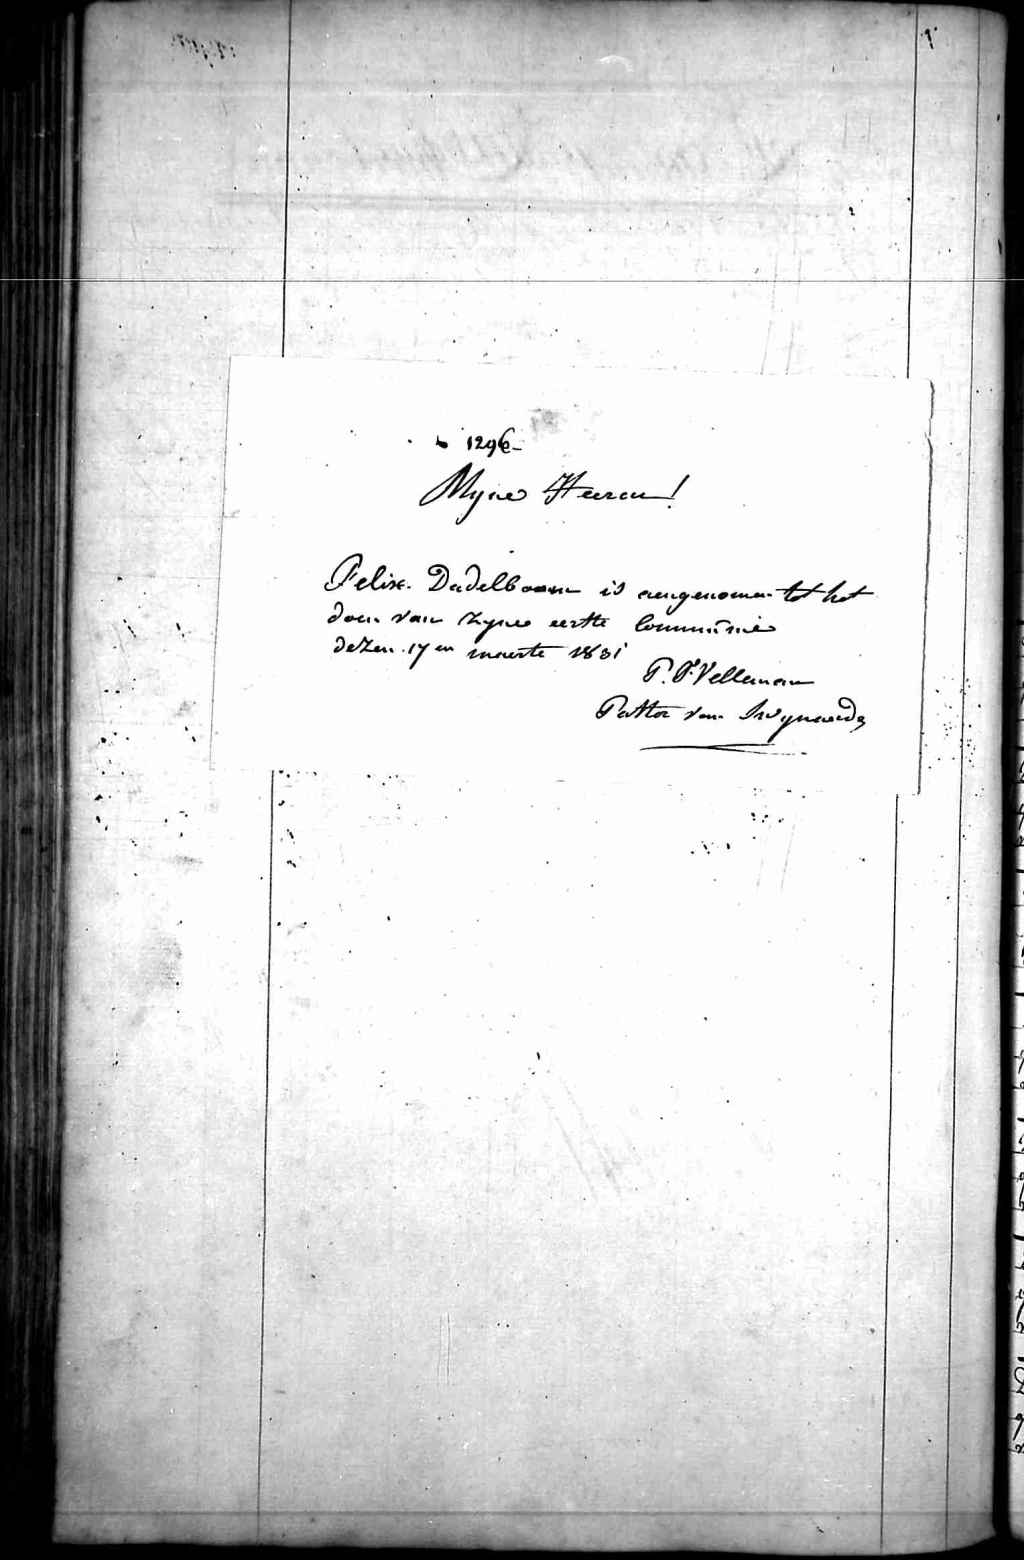 1296
Myne Heeren!
Felix Dadelboom is aengenomen tot het
doen van zyne eerste Communie
dezen 17en maerte 1831
P. F. Velleman
Pastor van Swynaerde